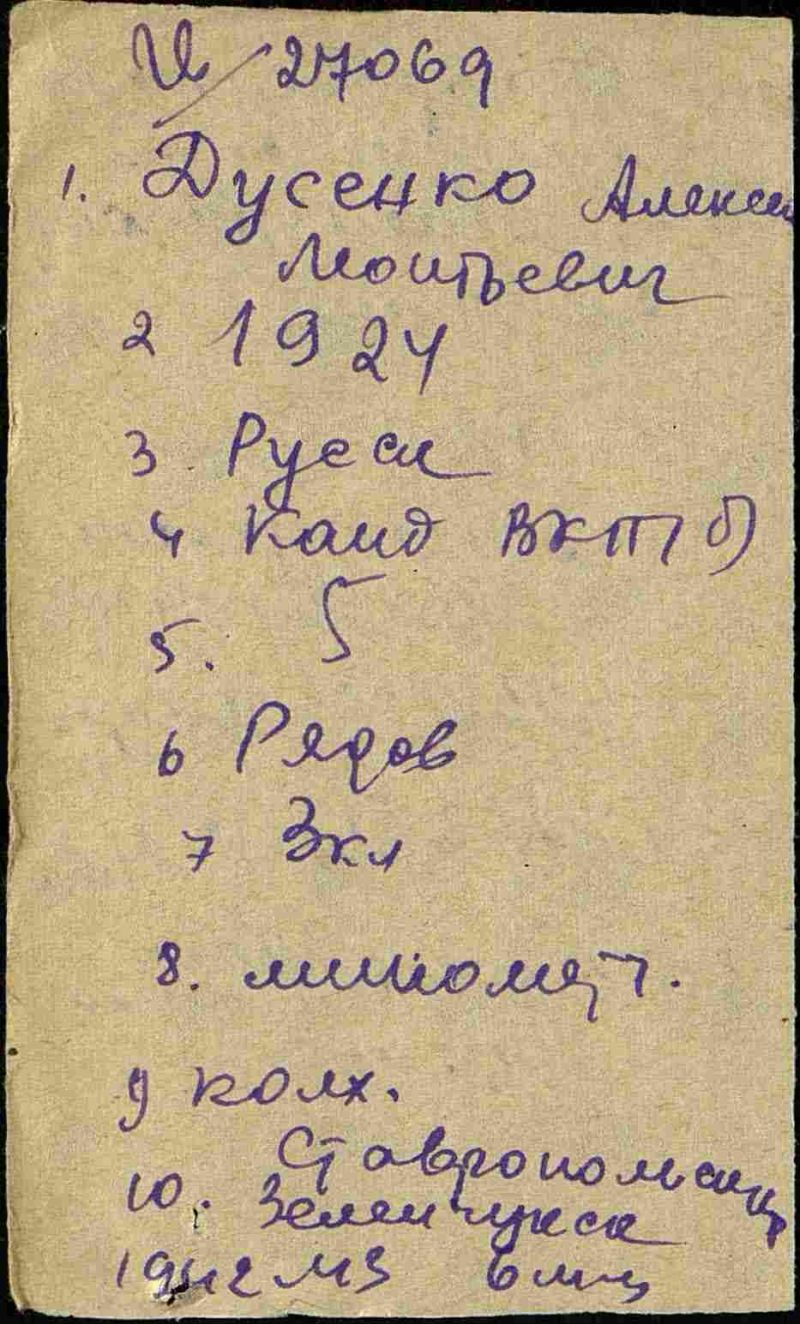 27069
1. Дусенко Алексе
Леонтьевич
2 1924
3 Русск
4 Канд ВКП б)
5. 5
6 Рядов
7 3кл
8. миномет.
9 колх.
10. Ставропольский
Зеленчукск
1942 МЗ 6 м-ц